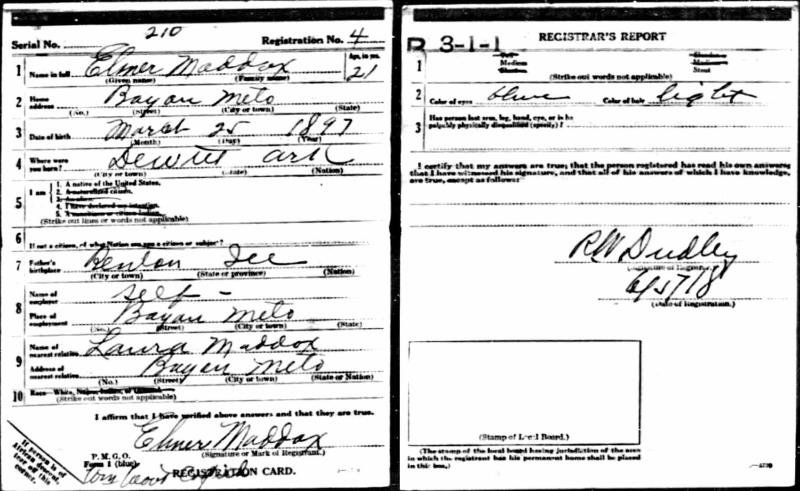 210
Serial No. Registration No. 4
1 Name in full Elmer Maddox Age, in yrs. 21
(Given name) (Family name)
2 Home address Bayou Meto
(No.) (Street) (City or town) (State)
3 Date of birth March 25 1897
(Month) (Day) (Year)
4 Where were you born? Dewitt Ark
(City or town) (State) (Nation)
5 I am
1. A native of the United States.
2. A naturalized citizen.
3. An alien.
4. I have declared my intention.
5. A noncitizen or citizen Indian.
(Strike out lines or words not applicable)
6 If not a citizen, of what Nation are you a citizen or subject?
7 Father's birthplace
(City or town) (State or province) (Nation)
8 Name of employer self -
Place of employment Bayou Meto
(No.) (Street) (City or town) (State)
9 Name of nearest relative Laura Maddox
Address of nearest relative Bayou Meto
(No.) (Street) (City or town) (State or Nation)
10 Race— White,
(Strike out words not applicable)
I affirm that I have verified above answers and that they are true.
Elmer Maddox
(Signature or Mark of Registrant.)
P. M. G. O.
Form 1 (blue) REGISTRATION CARD.
If person is of
African descent,
tear off this
corner.
REGISTRAR'S REPORT
3-1-1
1 Tall Medium Short Slender Medium Stout
(Strike out words not applicable)
2 Color of eyes blue Color of hair light
3 Has person lost arm, leg, hand, eye, or is he
palpably physically disqualified (specify)?
I certify that my answers are true; that the person registered has read his own answers;
that I have witnessed his signature, and that all of his answers of which I have knowledge,
are true, except as follows:
RW Dudley
(Signature of Registrar)
6/5/18
(Date of Registration.)
(Stamp of Local Board.)
(The stamp of the local board having jurisdiction of the area
in which the registrant has his permanent home shall be placed
in this box.)